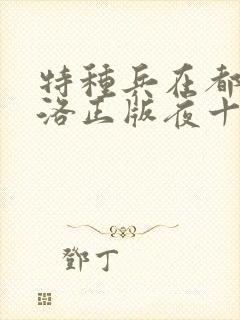 特種兵在都
洛正版夜十
鄧丁